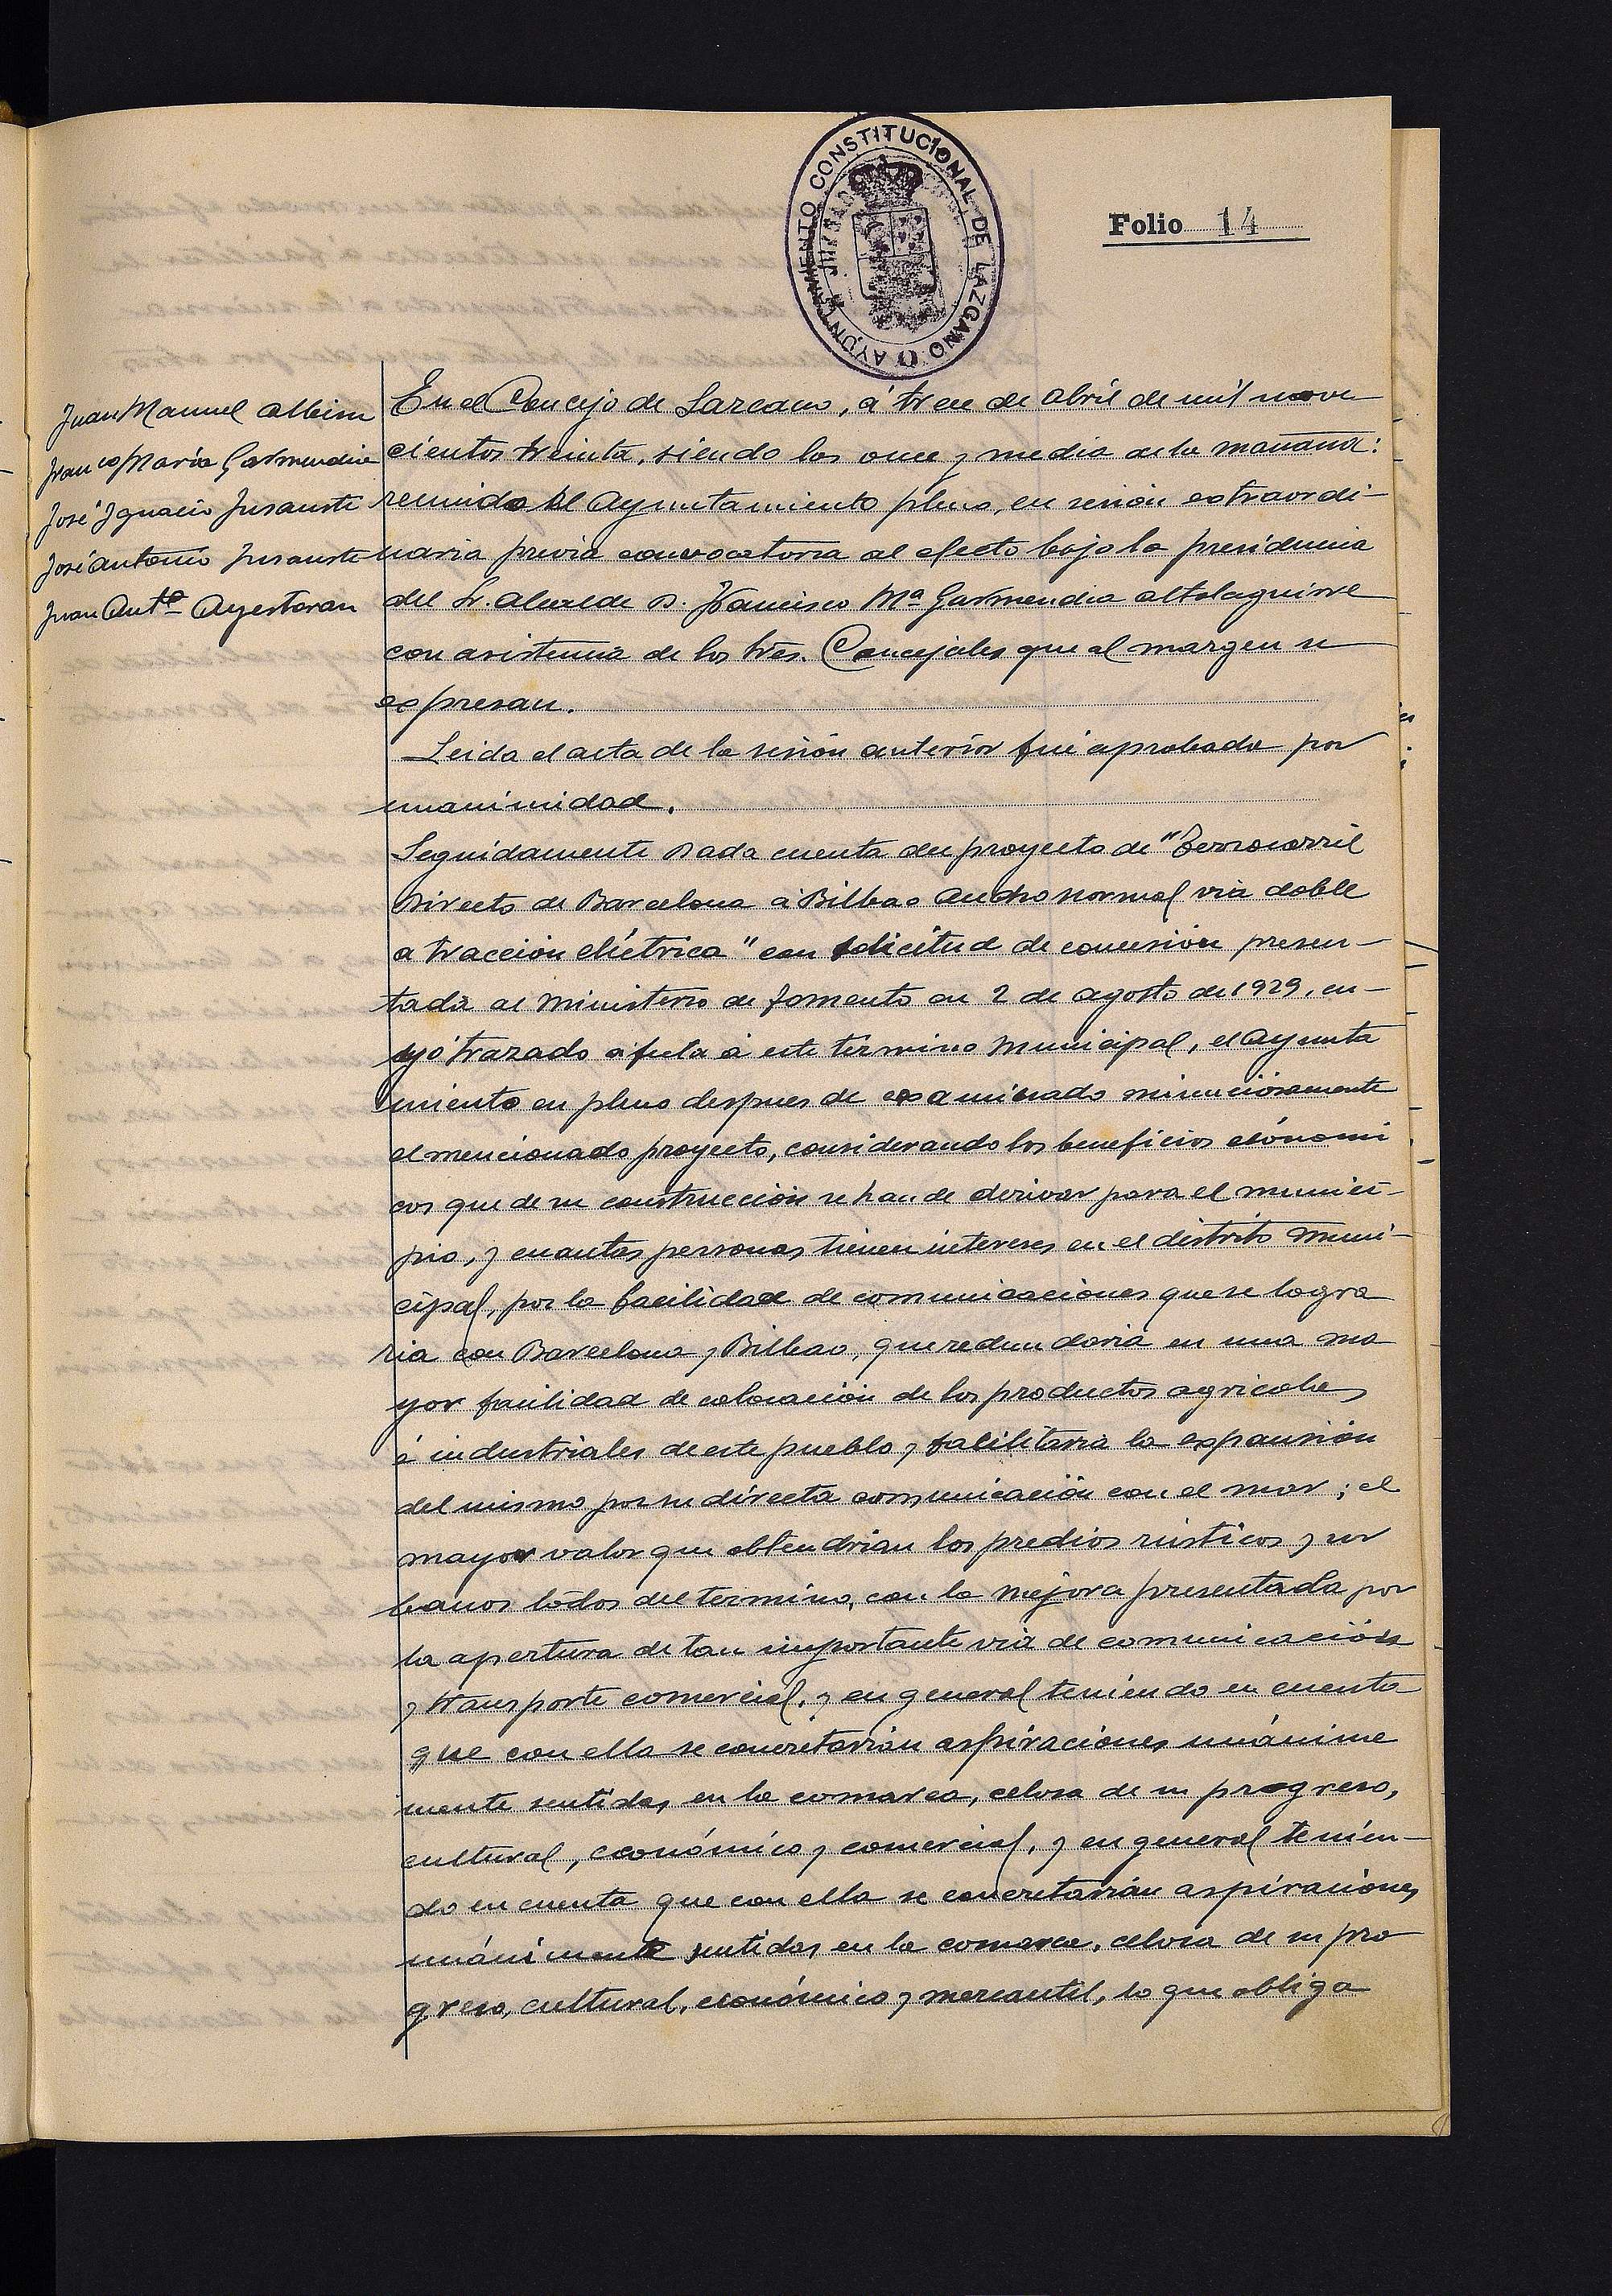 AYUNTAMIENTO CONSTITUCIONAL DE LAZCANO
Folio 14
Juan Manuel Albisu
Franco María Garmendia
José Ignacio Insausti
José Antonio Insausti
Juan Antº Ayestaran
En el Concejo de Lazcano, á trece de Abril de mil nove
cientos treinta, siendo las once y media de la mañana:
reunido el Ayuntamiento pleno, en sesión extraordi-
naria previa convocatoria al efecto bajo la presidencia
del Sr. Alcalde D. Francisco Mª Garmendia Altolaguirre
con asistencia de los Sres. Concejales que al margen se
expresan.
Leida el acta de la sesión anterior fué aprobada por
unanimidad.
Seguidamente dada cuenta del proyecto de "Ferrocarril
Directo de Barcelona á Bilbao ancho normal via doble
a tracción eléctrica" con solicitud de concesión presen-
tada al Ministerio de Fomento en 2 de agosto de 1929, cu-
yó trazado afecta á este término Municipal, el Ayunta
miento en pleno despues de examinado minuciosamente
el mencionado proyecto, considerando los beneficios económi
cos que de su construcción se han de derivar para el munici-
pio, y cuantas personas tienen intereses en el distrito muni-
cipal, por la facilidad de comunicaciones que se logra
ria con Barcelona y Bilbao, que redundaria en una ma
yor facilidad de colocación de los productos agricolas
é industriales de este pueblo y facilitaria la expansión
del mismo por su directa comunicación con el mar; el
mayor valor que obtendrian los predios rústicos y ur
banos todos del termino, con la mejora presentada por
la apertura de tan importante via de comunicación
y transporte comercial, y en general teniendo en cuenta
que con ella se concretarian aspiraciones unánime
mente sentidas en la comarca, celosa de su progreso,
cultural, económico y comercial, y en general tenien-
do en cuenta que con ella se concretarián aspiraciones
unánimente sentidas en la comarca, celosa de su pro
greso, cultural, económico y mercantil, lo que obliga